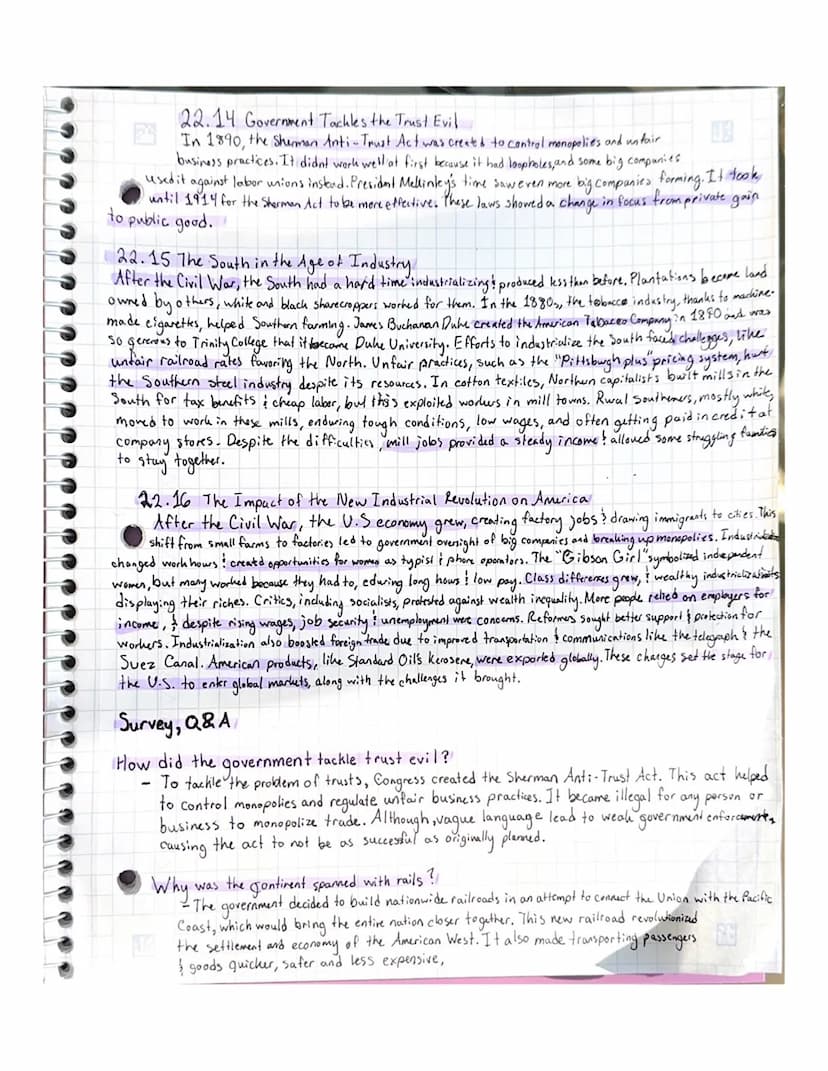 22.14 Government Tackles the Trust Evil
In 1890, the Sherman Anti-Trust Act was created to control monopolies and unfair
business practices. It didnt work well at first because it had loopholes, and some big companies
used it against labor unions instead. President McKinley's time saw even more big companies forming. It took
until 1914 for the Sherman Act to be more effective. These laws showed a change in focus from private gain
to public good.
22.15 The South in the Age of Industry
After the Civil War, the South had a hard time industrializing & produced less than before. Plantations became land
owned by others, white and black sharecroppers worked for them. In the 1880s, the tobacco industry, thanks to machine-
made cigarettes, helped Southern farming. James Buchanan Duke created the American Tobacco Company in 1890 and was
so generous to Trinity College that it became Duke University. Efforts to industrialize the South faced challenges, like
unfair railroad rates favoring the North. Unfair practices, such as the "Pittsburgh plus" pricing system, hurt
the Southern steel industry despite its resources. In cotton textiles, Northern capitalists built mills in the
South for tax benefits & cheap labor, but this exploited workers in mill towns. Rural southerners, mostly white,
moved to work in these mills, enduring tough conditions, low wages, and often getting paid in credit at
company stores. Despite the difficulties, mill jobs provided a steady income & allowed some struggling families
to stay together.
22.16 The Impact of the New Industrial Revolution on America
After the Civil War, the U.S economy grew, creating factory jobs & drawing immigrants to cities. This
shift from small farms to factories led to government oversight of big companies and breaking up monopolies.
changed work hours & created opportunities for women as typist & phone operators. The "Gibson Girl" symbolized independent
women, but many worked because they had to, eduring long hours & low pay. Class differences grew, & wealthy
displaying their riches. Critics, including socialists, protested against wealth inequality. More people relied on employers for
income, & despite rising wages, job security & unemployment were concerns. Reformers sought better support & protection for
workers. Industrialization also boosted foreign trade due to improved transportation & communications like the telegraph & the
Suez Canal. American products, like Standard Oils Kerosene, were exported globally. These changes set the stage for
the U.S. to enter global markets, along with the challenges it brought.
Survey, Q&A
How did the government tackle trust evil?
- To tackle the problem of trusts, Congress created the Sherman Anti-Trust Act. This act helped
to control monopolies and regulate unfair business practices. It became illegal for any person or
business to monopolize trade. Although, vague language lead to weak government enforcement,
causing the act to not be as successful as originally planned.
Why was the continent spanned with rails?
- The government decided to build nationwide railroads in an attempt to connect the Union with the Pacific
Coast, which would bring the entire nation closer together. This new railroad revolutionized
the settlement and economy of the American West. It also made transporting passengers
& goods quicker, safer and less expensive,